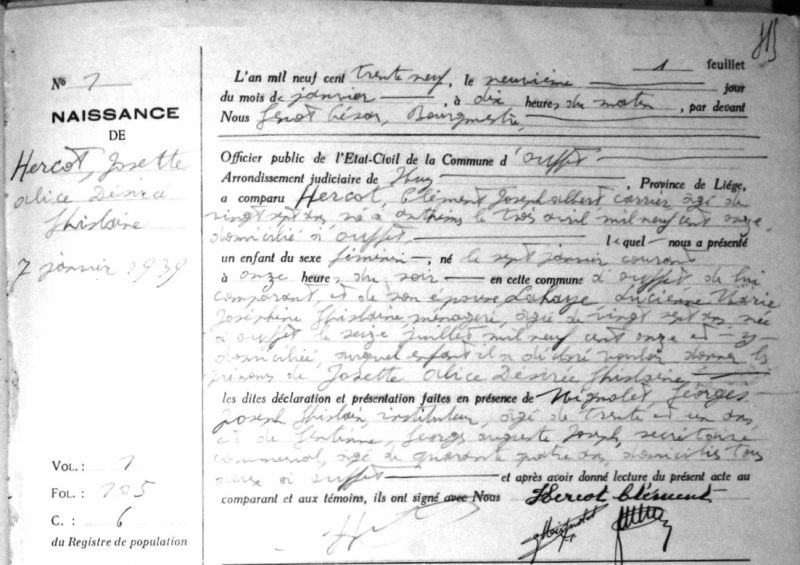 1 feuillet
N° 1
NAISSANCE
DE
Hercot, Josette
Alice Désirée
Ghislaine
7 janvier 1939
L'an mil neuf cent trente neuf, le neuvième jour
du mois de janvier, à dix heures du matin, par devant
Nous César, Bourgmestre,
Officier public de l'Etat-Civil de la Commune d'Ouffet
Arrondissement judiciaire de Huy, Province de Liége,
a comparu Hercot, Clément Joseph Albert carrier âgé de
vingt sept ans né à Anthisnes le trois avril mil neuf cent onze,
domicilié à Ouffet lequel nous a présenté
un enfant du sexe féminin, né le sept janvier courant
à onze heures du soir en cette commune d'Ouffet de lui
comparant, et de son épouse Lahaye Lucienne Marie
Joséphine Ghislaine, ménagère, âgée de vingt sept ans née
à Ouffet le seize juillet mil neuf cent onze et y
domiciliée, auquel enfant il a déclaré vouloir donner les
prénoms de Josette Alice Désirée Ghislaine
les dites déclaration et présentation faites en présence de Mignolet Georges
Joseph Ghislain, instituteur, âgé de trente et un ans
et de Georges Auguste Joseph, secrétaire
communal, âgé de quarante quatre ans, domiciliés tous
deux à Ouffet et après avoir donné lecture du présent acte au
comparant et aux témoins, ils ont signé avec Nous Hercot Clément
Mignolet
VOL.: 1
FOL.: 105
C.: 6
du Registre de population